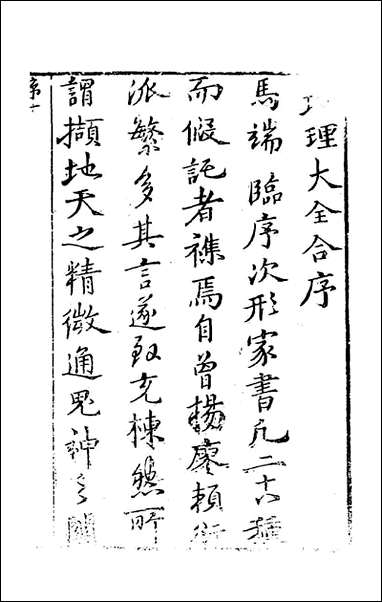 理大全合序
馬端臨序次形家書凡二十種
而假託者襍焉自曾楊廖賴衍
派繁多其言遂致充棟然所
謂擷地天之精微通鬼神之關
序